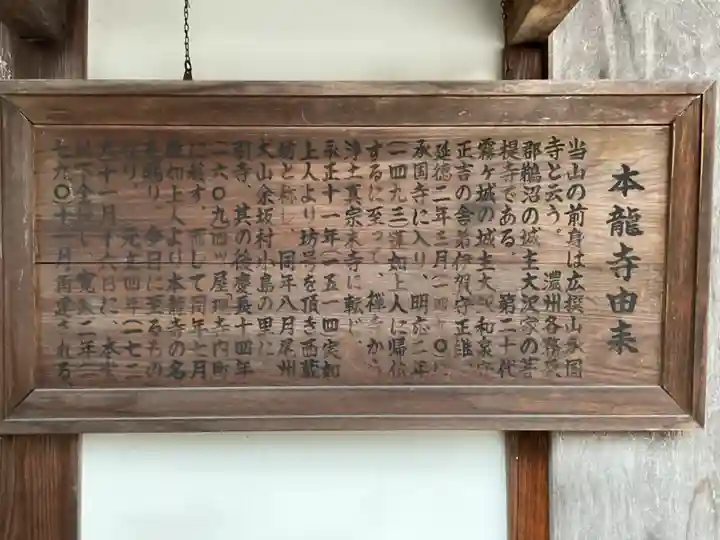 本龍寺由来
当山の前身は広撰山永国
寺と云う。 濃州各務
郡鵜沼の城主大沢家の菩
提寺である。 第二十代
霧ヶ城の城主大沢和泉守
正吉の舎弟伊賀守正
延徳二年三月一四九〇
承国寺に入り、明応二年
一四九三蓮如上人に帰依
するに至って、禅寺から
浄土真宗末寺に転じ、
永正十一年一五一四実如
上人より坊号を頂き西蔵
坊と称し、同年八月尾州
犬山余坂村小島の里に
引寺、其の後慶長十四年
一六〇九 屋 寺内町
に移す。而して同年七月
如上人より本龍寺の名
を賜り、今日に至るもの
なり。 元 四年一 七二
十一月十六日に、本堂
以下全 し、寛 二年
七九〇十 月再建される